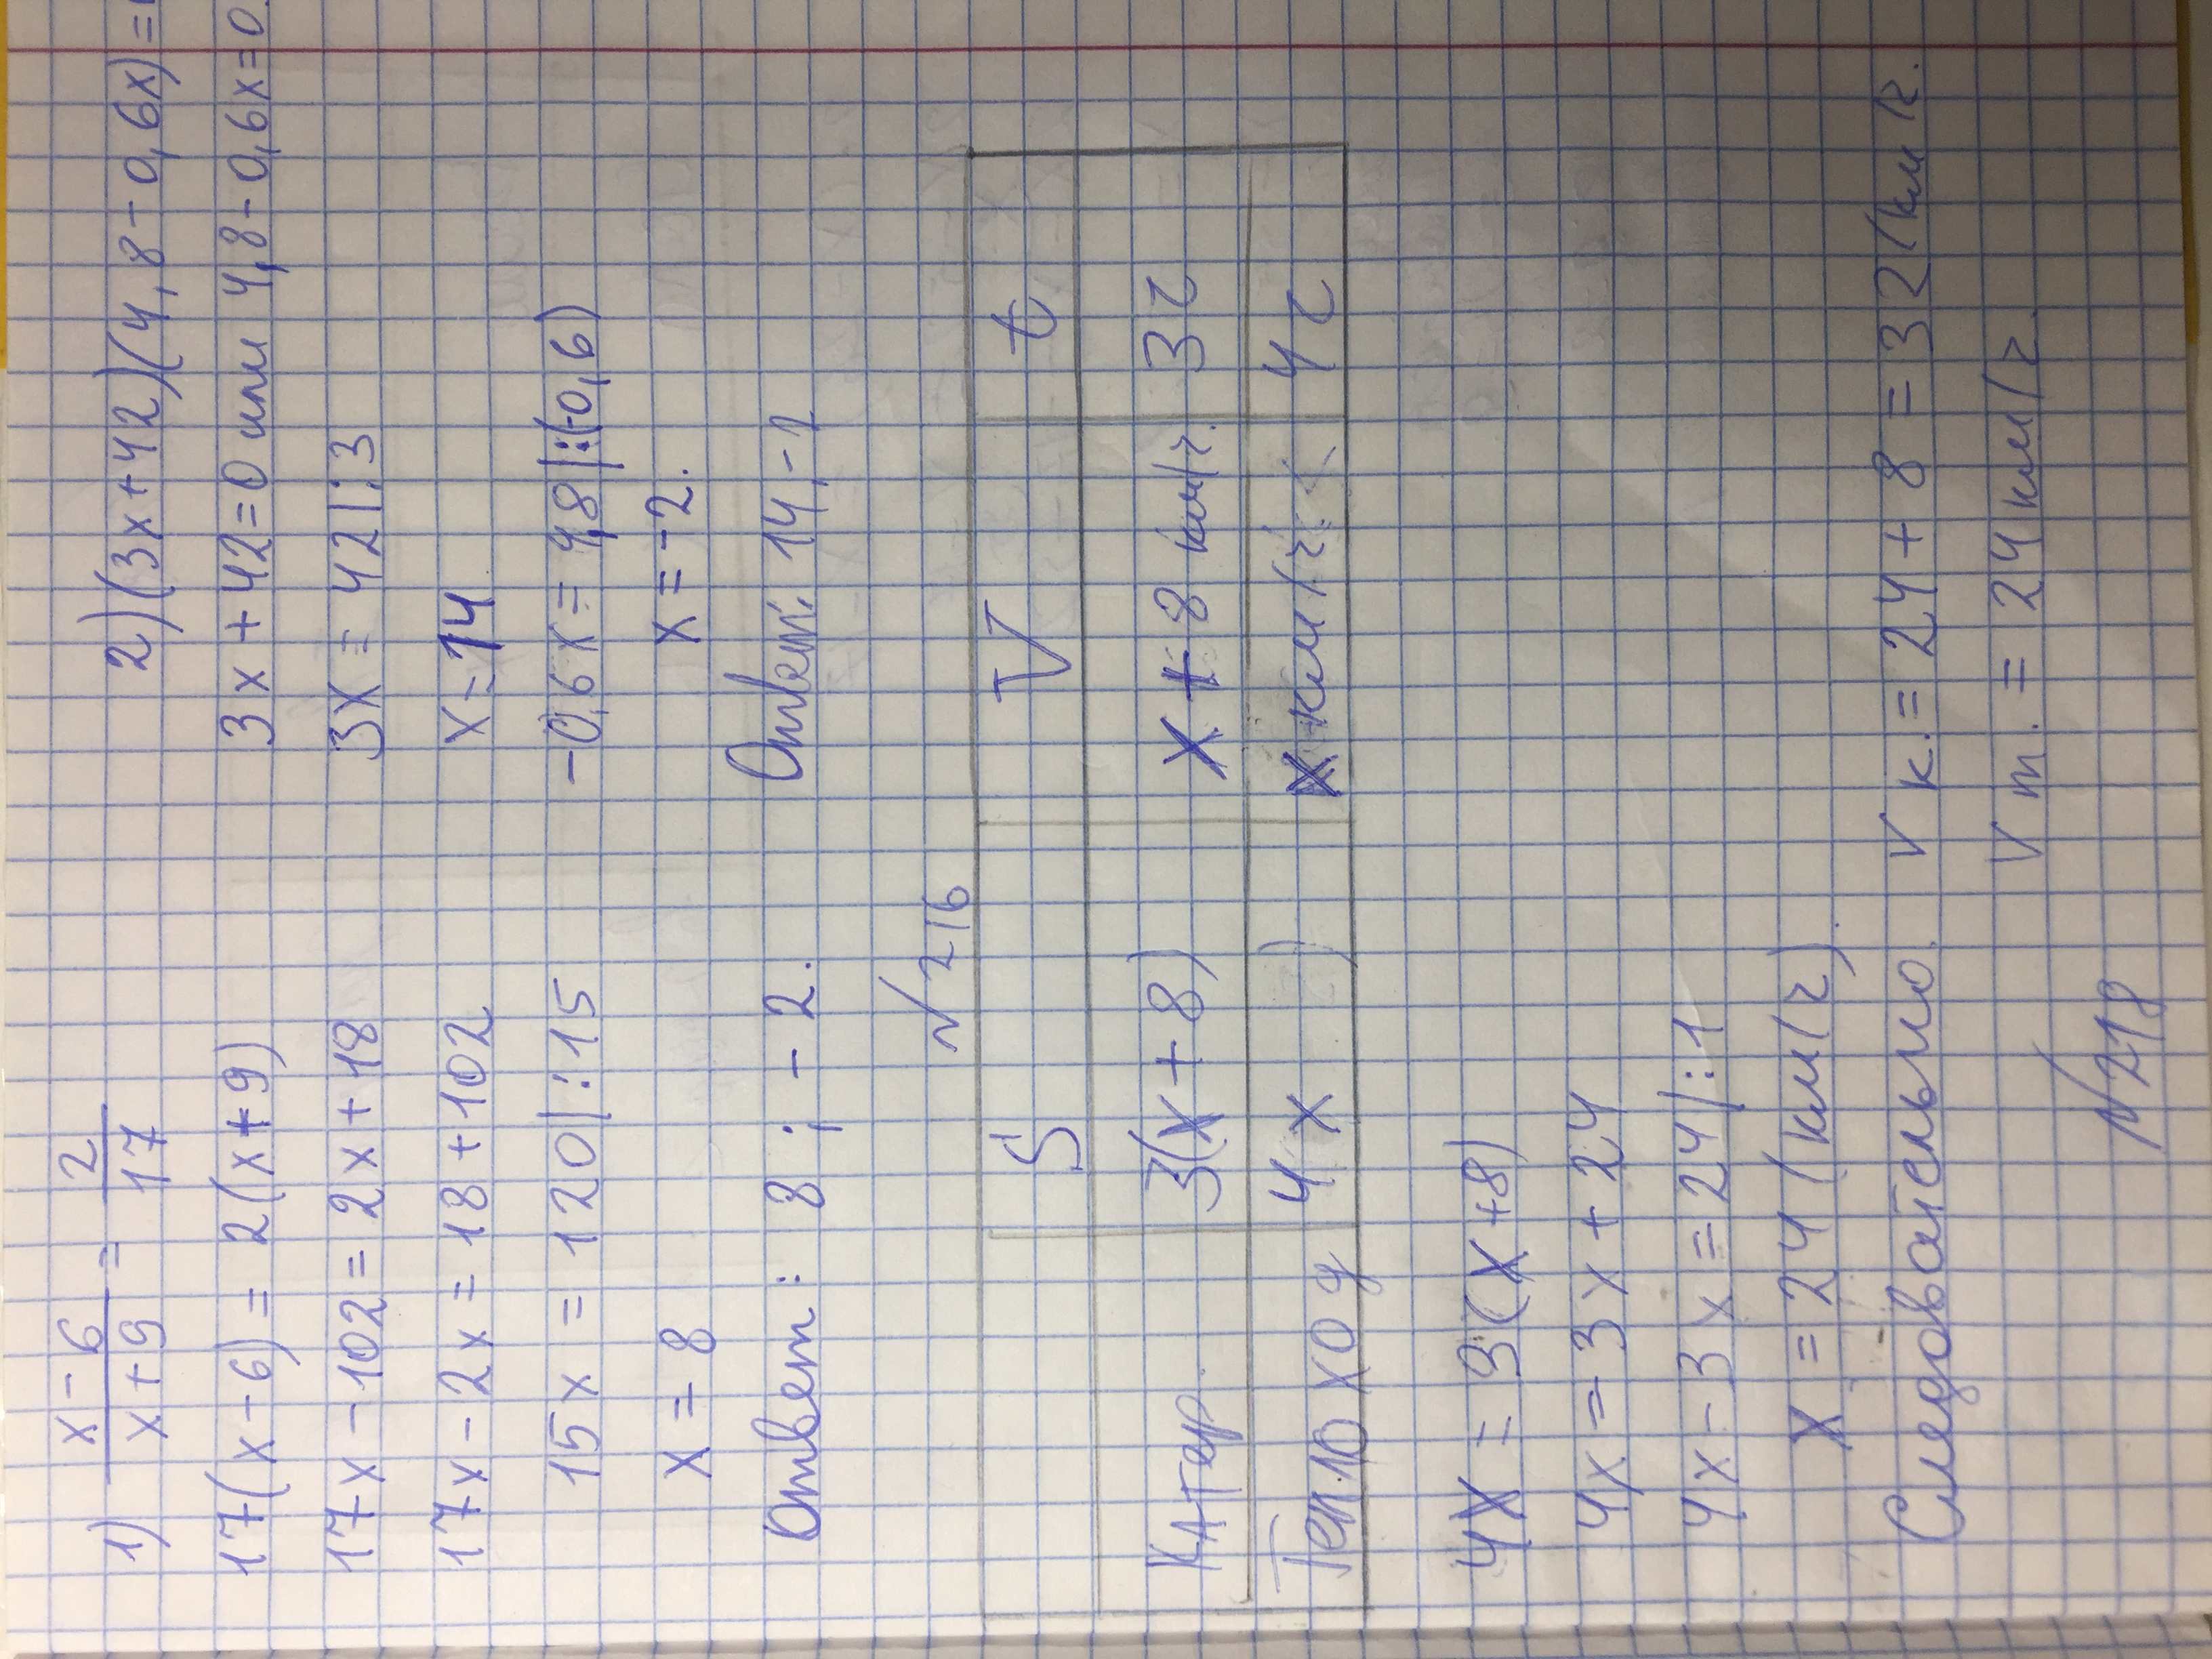 1) x-6/x+9 = 2/17
17(x-6) = 2(x+9)
17x-102=2x+18
17x-2x=18+102
15x=120|:15
x=8
Ответ: 8; -2.
2)(3x+42)(4,8-0,6x)=
3x+42=0 или 4,8-0,6x=0.
3x=42|:3
x=14
-0,6x=4,8|:(-0,6)
x=-2.
Ответ: 14,-2
№216
S V t
Катер 3(x+8) x+8 км/ч. 3 ч
Теплоход 4x x км/ч 4 ч
4x=3(x+8)
4x=3x+24
4x-3x=24|:1
x=24 (км/ч).
Следовательно. V к.=24+8=32(км/ч.
V т.=24км/ч.
№218